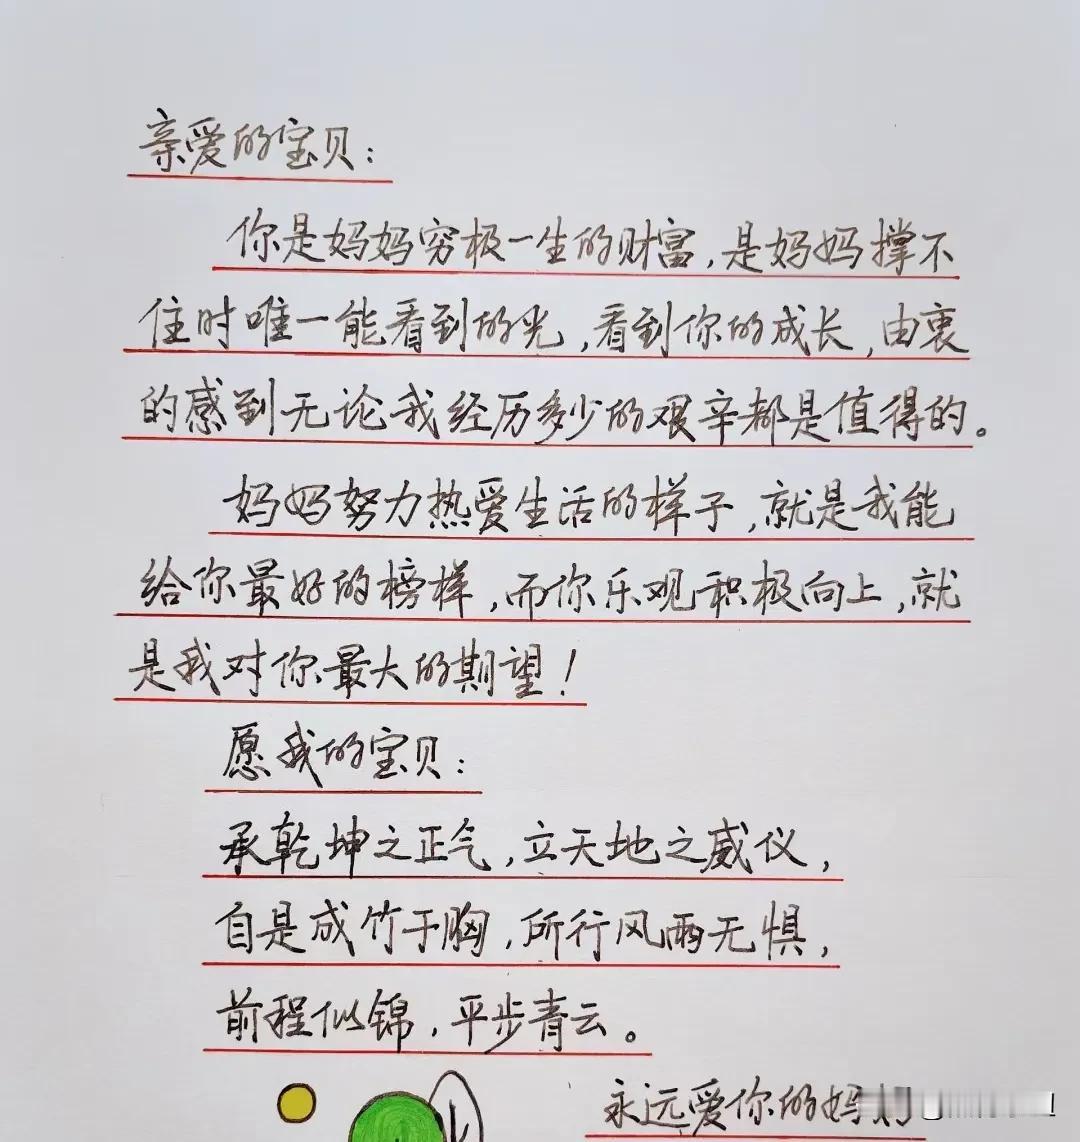 亲爱的宝贝:
你是妈妈穷极一生的财富,是妈妈撑不
住时唯一能看到的光,看到你的成长,由衷
的感到无论我经历多少的艰辛都是值得的。
妈妈努力热爱生活的样子,就是我能
给你最好的榜样,而你乐观积极向上,就
是我对你最大的期望!
愿我的宝贝:
承乾坤之正气,立天地之威仪,
自是成竹于胸,所行风雨无惧,
前程似锦,平步青云。
永远爱你的妈妈